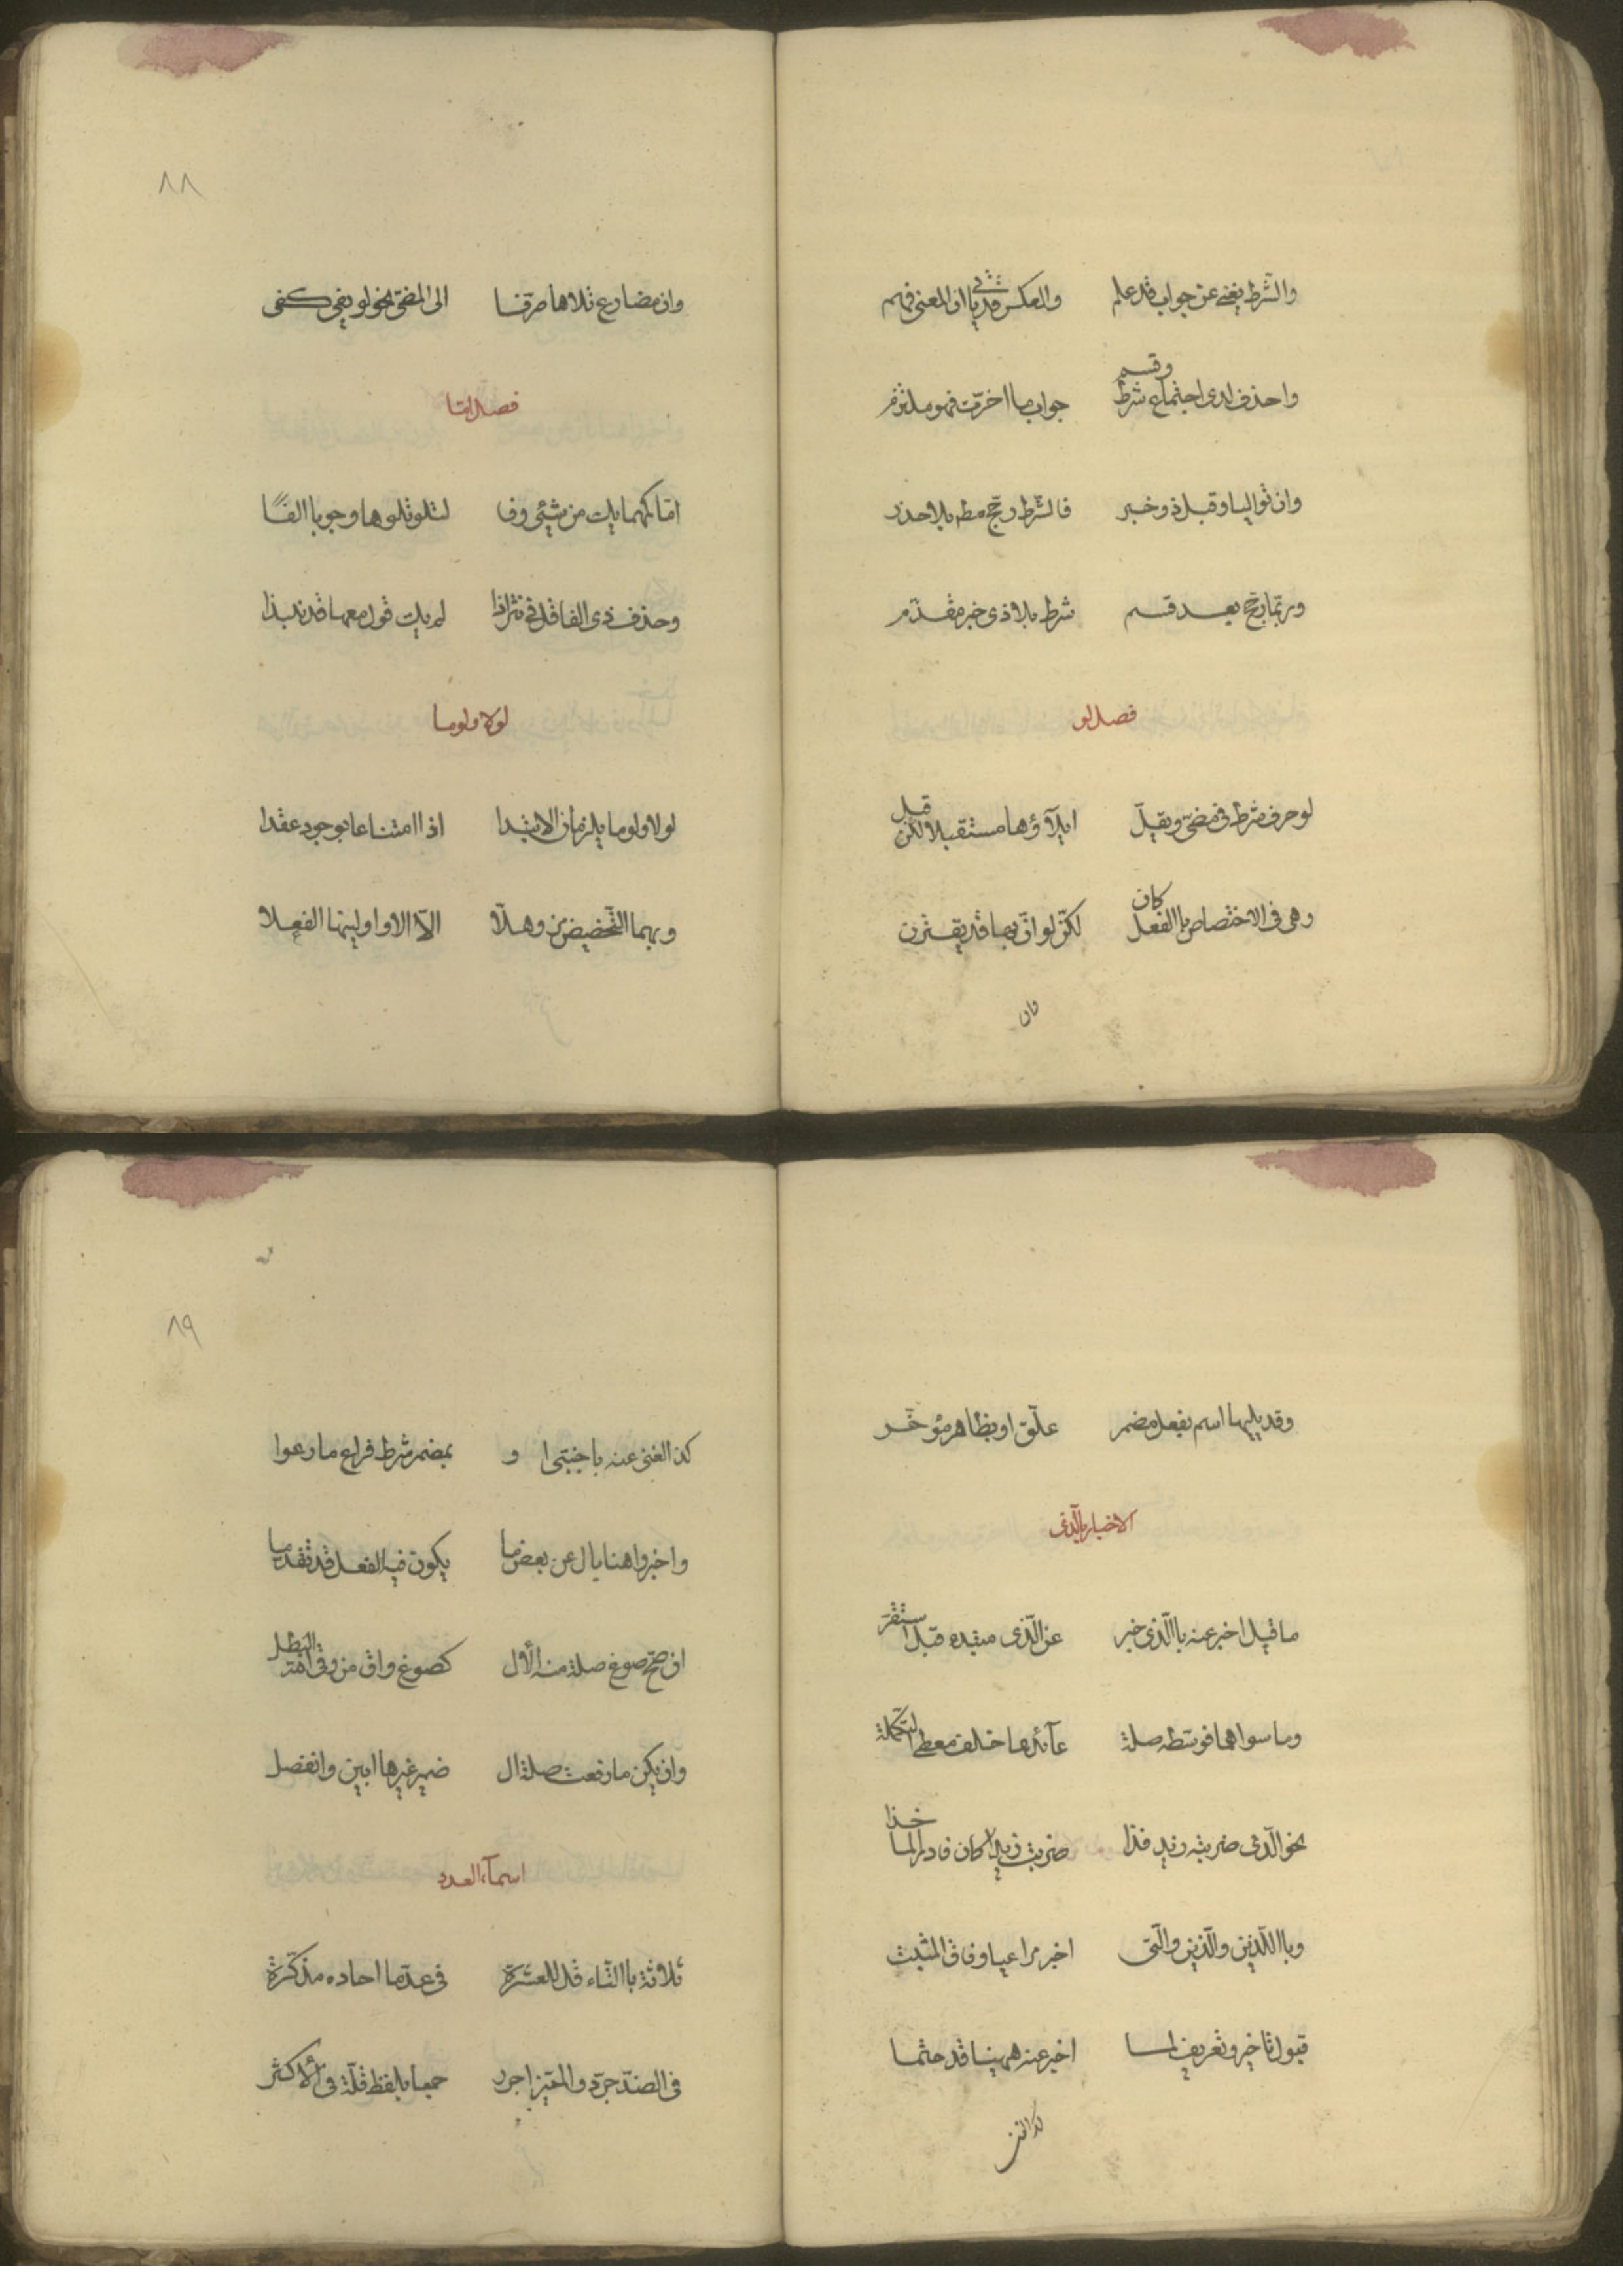 والشرط يغنى عن جواب قد علم والعكس قد ياتى ان المعنى فهم
واحذف لدى اجتماع شرط وقسم جواب ما اخرت فهو ملتزم
وان تواليا وقبل ذو خبر فالشرط رجح مط بلا حذر
وربما رجح بعد قسم شرط بلا ذى خبر مقدم
فصل لو
لو حرف شرط فى مضى ويقل ايلآؤها مستقبلا لكن قبل
وهى فى الاختصاص باالفعل كان لكن لو ان بها قد يقترن
وان
٨٨
وان مضارع تلاها صرفا الى المضى نحو لو يفى كفى
فصل اما
اما كمهما يك من شيئ وفا لتلو تلوها وجوبا الفا
وحذف ذى الفا قل فى نثر اذا لم يك قول معها قد نبذا
لولا ولوما
لولا ولوما يلزمان الابتدا اذا امتناعا بوجود عقدا
وبهما التحضيض مز وهلا الآ الا واولينها الفعلا
وقد يليها اسم بفعل مضمر علق او بظاهر مؤخر
الاخبار بالذى
ما قيل اخبر عنه باالذى خبر عن الذى مبتدء قبل استقر
وما سواهما فوسطه صلة عآئدها خلف معطى التكملة
نحو الذى ضربته زيد فذا ضربت زيدا كان فادر الما خذا
وباالذين والذين والتى اخبر مراعيا وفاق المثبت
قبول تاخير وتعريف لما اخبر عنه ههينا قد حتما
كذا الغنى
٨٩
كذا الغنى عنه باجنبى او بمضمر شرط فراع ما رعوا
واخبروا هنا بال عن بعض ما يكون فيه الفعل قد تقدما
ان صح صوغ صلة منه لأل كصوغ واق من وقى الله البطل
وان يكن ما رفعت صلة ال ضمير غيرها ابين وانفصل
اسمآء العدد
ثلاثة باالتاء قل للعشرة فى عد ما احاده مذكرة
فى الضد جرد والمميز اجرر جمعا بلفظ قلة فى الأكثر